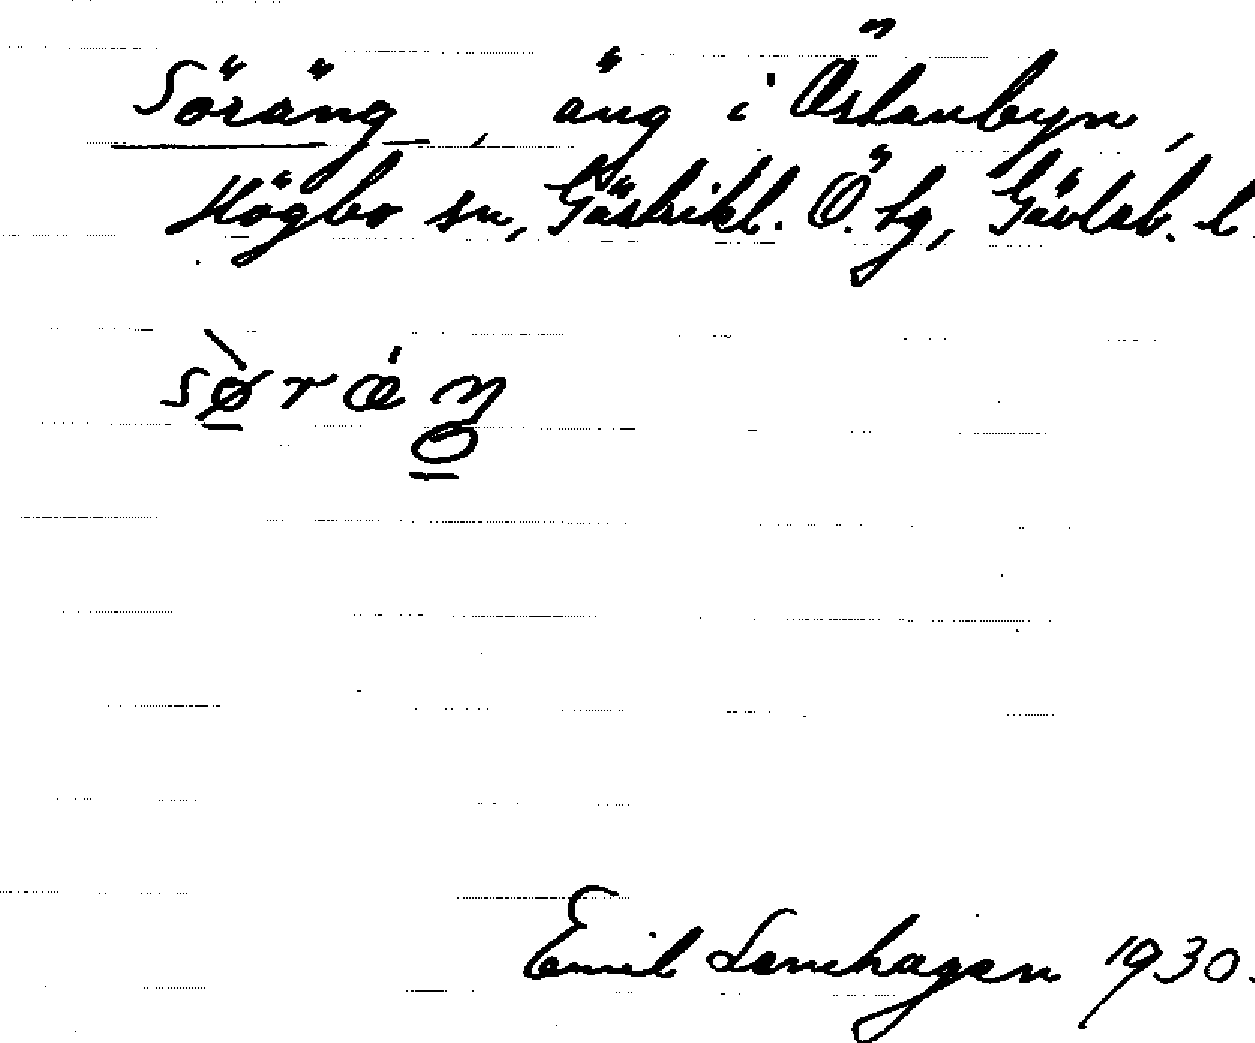 Söräng, äng i Östanbyn,
Högbo sn, Gästrikl. Ö. tg, Gävleb. l.
sø̀rǽŋ
Emil Lenhagen 1930.